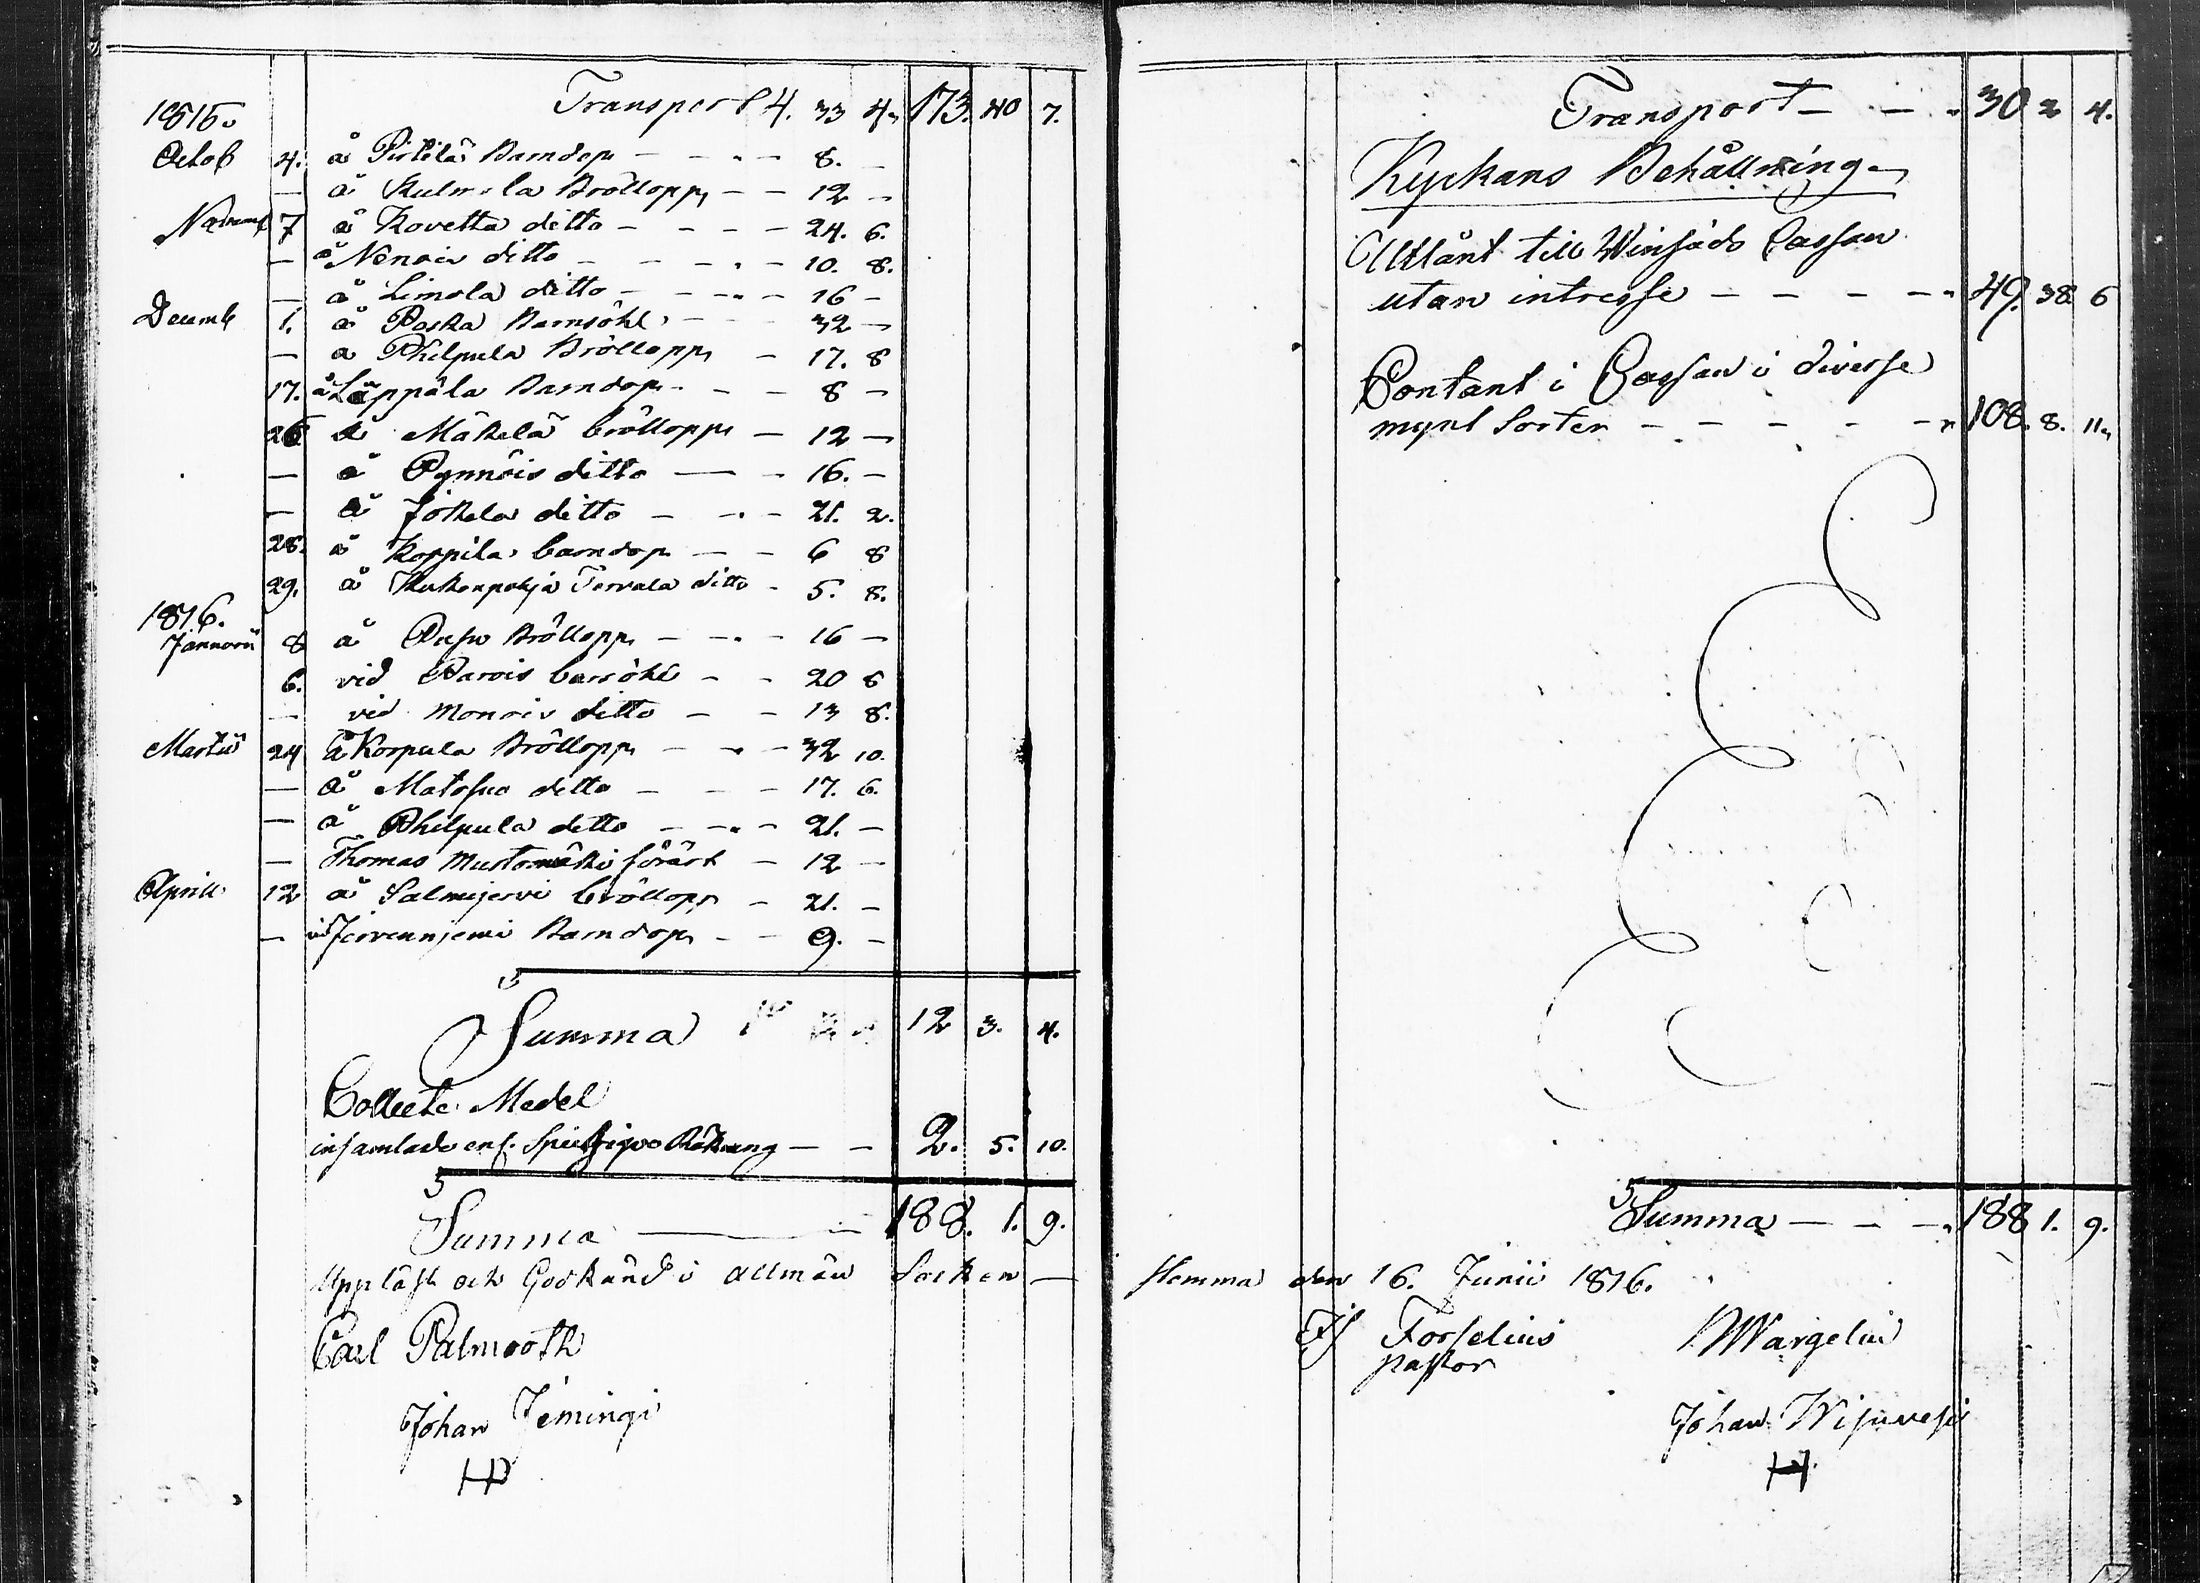 Transport 4. 33 4. 173. 40 7.
1815.
Octob 4. å Pirtilä Barndop — — — 8. —
— å Kulmala Bröllopp — — 12 —
Novemb 7 å Kovetta ditto — — — 24. 6.
— å Nenois ditto — — — 10. 8.
— å Limola ditto — — — 16 —
Decemb 1. å Paska Barnsöhl — — 32 —
— å Philpula Bröllopp — 17. 8
17. å Läppälä Barndop — — 8 —
26 å Mäkelä bröllopp — 12 —
— å Pynnöis ditto — — 16. —
— å Jokela ditto — — — 21. 2.
28. å Koppila barndop — — 6 8
29. å Kukonpohja Torvala ditto — 5. 8.
1816.
Januarii 8 å Pusu Bröllopp — — — 16 —
6. vid Parois barsöhl — — 20 8
— vid Monois ditto — — 13 8.
Martii 24 å Korpula Bröllopp — — — 32 10.
— å Matosuo ditto — — — 17. 6.
— å Philpula ditto — — — 21. —
— Thomas Mustomäki förärt — 12 —
Aprill 12 å Salmijervi bröllopp — 21. —
— vid Jervenjervi Barndop — — 9. —
Summa 12 3. 4.
Collecte Medel
insamlade enl. Räkning — — 2. 5. 10.
Summa — 188. 1. 9.
Uppläst och Godkänd i allmän Socken —
Carl Palmrooth
Johan Jemingi
Transport — — — 30 2 4.
Kyrkans Behållning
Utlånt till Winsäds Cassan
utan intresse — — — — 49. 38 6
Contant i Cassan i diverse
mynt Sorter — — — — — 108. 8. 11.
Summa — — — 188 1. 9.
stemma den 16. Junii 1816.
Forselius
pastor
Wargelin
Johan Wisuvesi